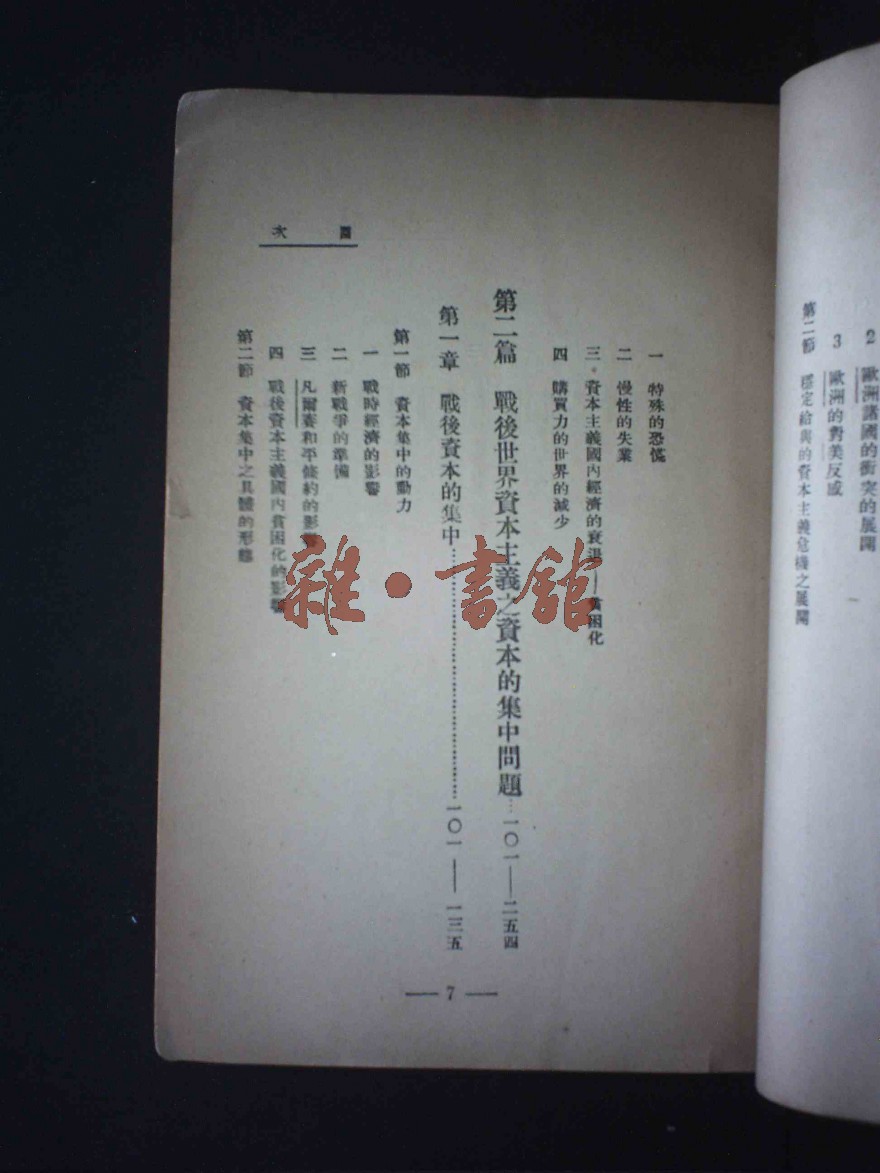 2 歐洲諸國的衝突的展開
3 歐洲的對美反感
第二節 穩定給與的資本主義危機之展開
目次
一 特殊的恐慌
二 慢性的失業
三・資本主義國內經濟的衰退——貧困化
四 購買力的世界的減少
第二篇 戰後世界資本主義之資本的集中問題…一〇一——二五四
第一章 戰後資本的集中……一〇一——一三五
第一節 資本集中的動力
一 戰時經濟的影響
二 新戰爭的準備
三 凡爾賽和平條約的影響
四 戰後資本主義國內貧困化的影響
第二節 資本集中之具體的形態
— 7 —
雜・書館